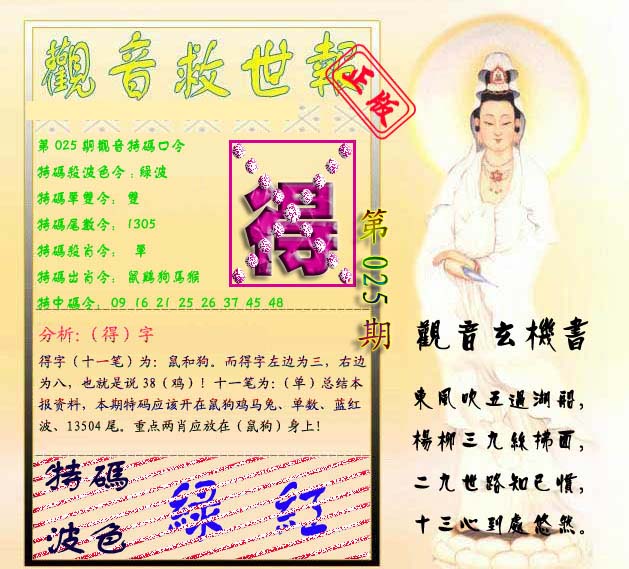 觀音救世報
正版
第025期觀音特碼口令
特碼殺波色令：綠波
特碼單雙令： 雙
特碼尾數令： 1305
特碼殺肖令： 單
特碼出肖令： 鼠鷄狗馬猴
特中碼令： 09 16 21 25 26 37 45 48
得
第025期
分析:（得）字
得字（十一笔）为：鼠和狗。而得字左边为三，右边
为八，也就是说 38（鸡）！十一笔为:（单）总结本
报资料，本期特码应该开在鼠狗鸡马兔、单数、蓝红
波、13504 尾。重点两肖应放在（鼠狗）身上！
特碼
波色
綠 紅
觀音玄機書
東風吹五過湖船，
楊柳三九絲拂面，
二九世路知已慣，
十三心到處悠然。